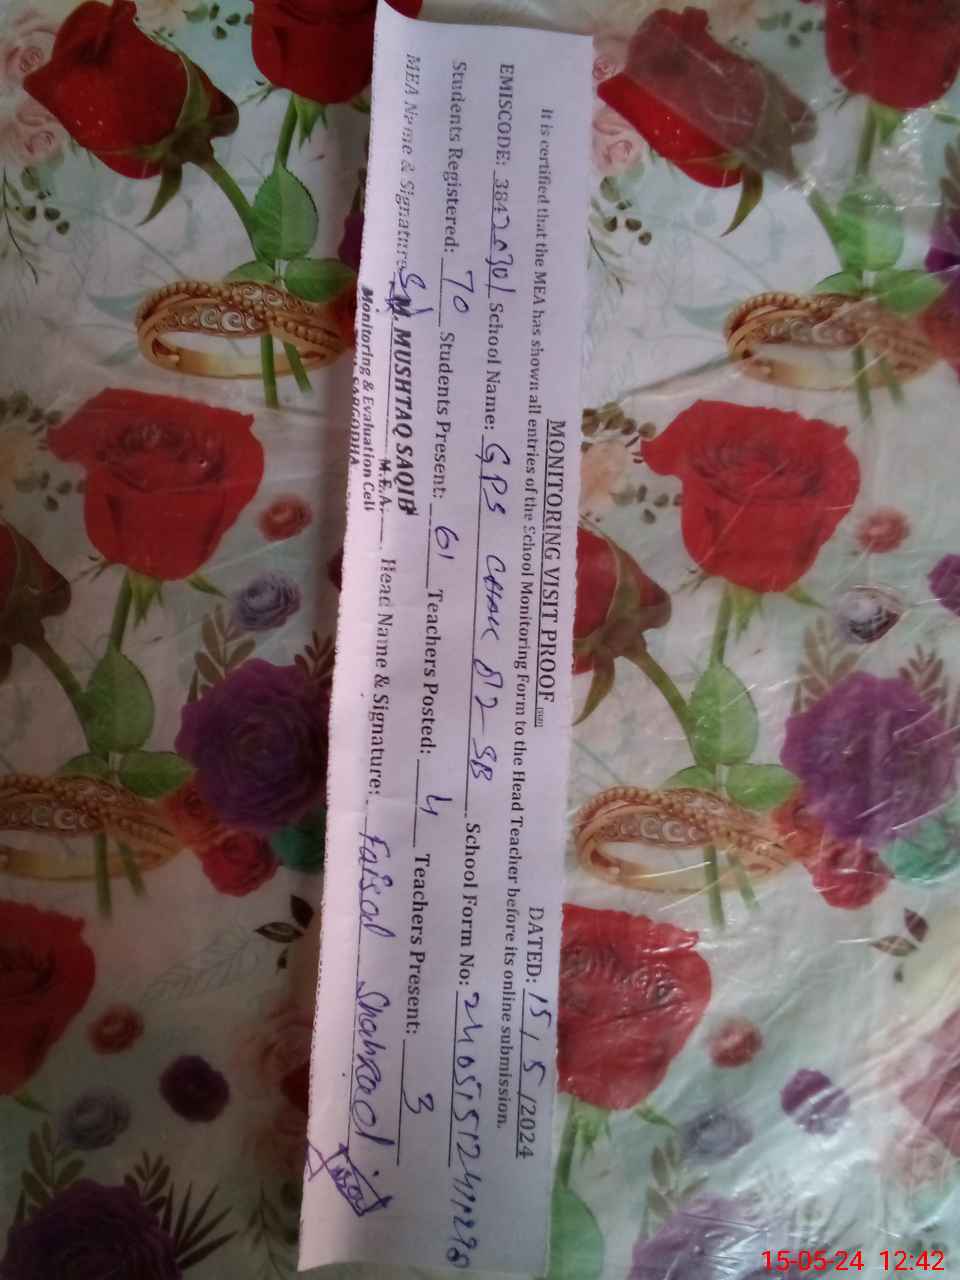 MONITORING VISIT PROOF
DATED: 15/5/2024
It is certified that the MEA has shown all entries of the School Monitoring Form to the Head Teacher before its online submission.
EMISCODE: 38420301 School Name: GPS CHAK 82-SB School Form No:
Students Registered: 70 Students Present: 61 Teachers Posted: 4 Teachers Present: 3
MEA Name & Signature M. MUSHTAQ SAQIB Head Name & Signature: Faisal Shahzad
M.E.A.
Monitoring & Evaluation Cell
SARGODHA
15-05-24 12:42